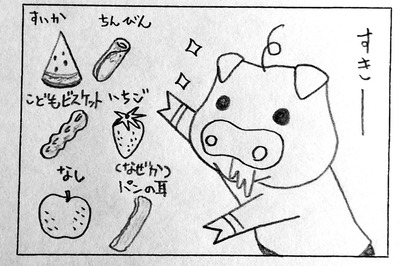 すいか
ちんびん
こどもビスケット
いちご
なし
(なぜか)
パンの耳
すきー